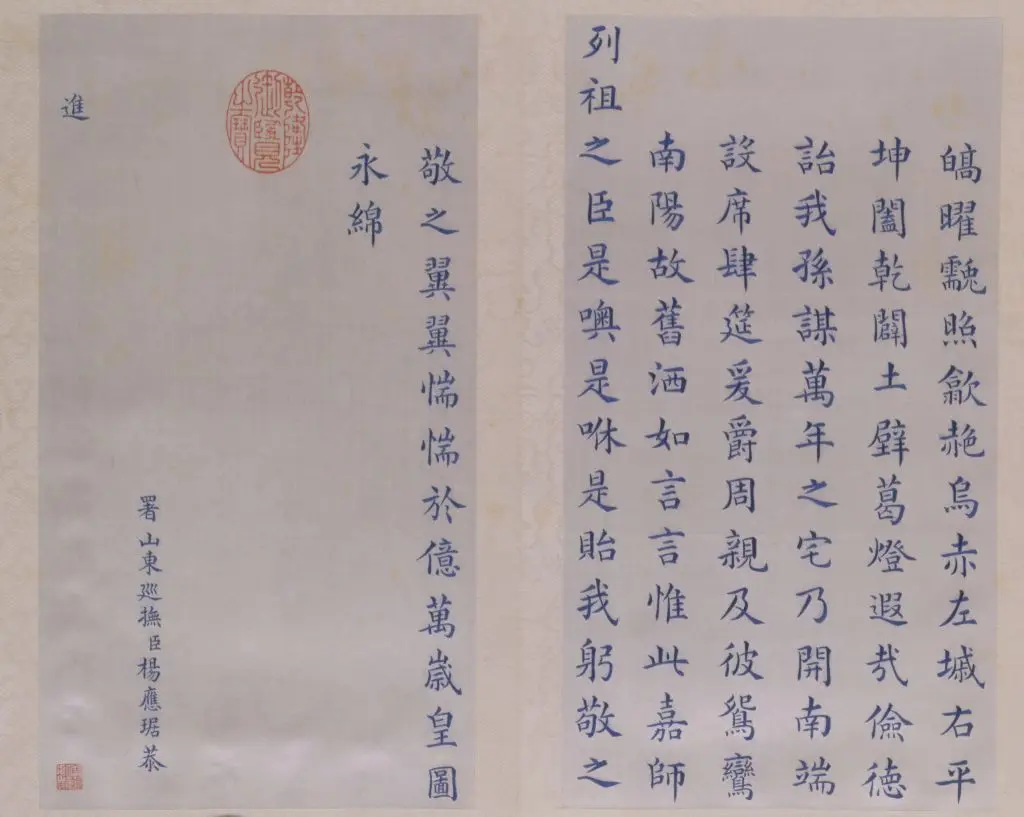 皜曜霼照歙赩烏赤左墄右平
坤闔乾闢土壁葛燈遐哉儉德
詒我孫謀萬年之宅乃開南端
設席肆筵爰爵周親及彼鴛鸞
南陽故舊洒如言言惟此嘉師
列祖之臣是噢是咻是貽我躬敬之
敬之翼翼惴惴於億萬歲皇圖
永綿
署山東廵撫臣楊應琚恭
進
乾隆御覽之寶